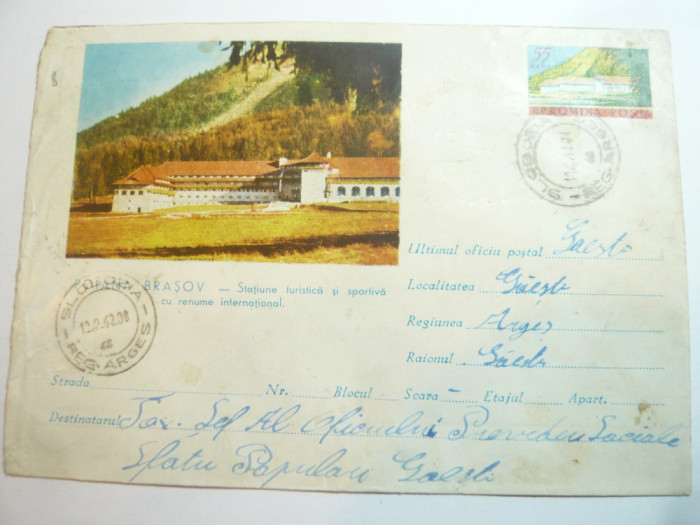 55
BANI
R.P.ROMINA POSTA
SLOBOZIA
REG. ARGES
Ultimul oficiu poştal Gaesti
POIANA BRAŞOV — Staţiune turistică şi sportivă
cu renume internaţional.
Localitatea Găeşti
Regiunea Argeş
Raionul Găeşti
SLOBOZIA
12.2.62.08
REG. ARGES
Strada Nr. Blocul Scara — Etajul Apart.
Destinatarul Tov. Şef Al Oficiului Prevederi Sociale
Sfatu Popular Gaesti